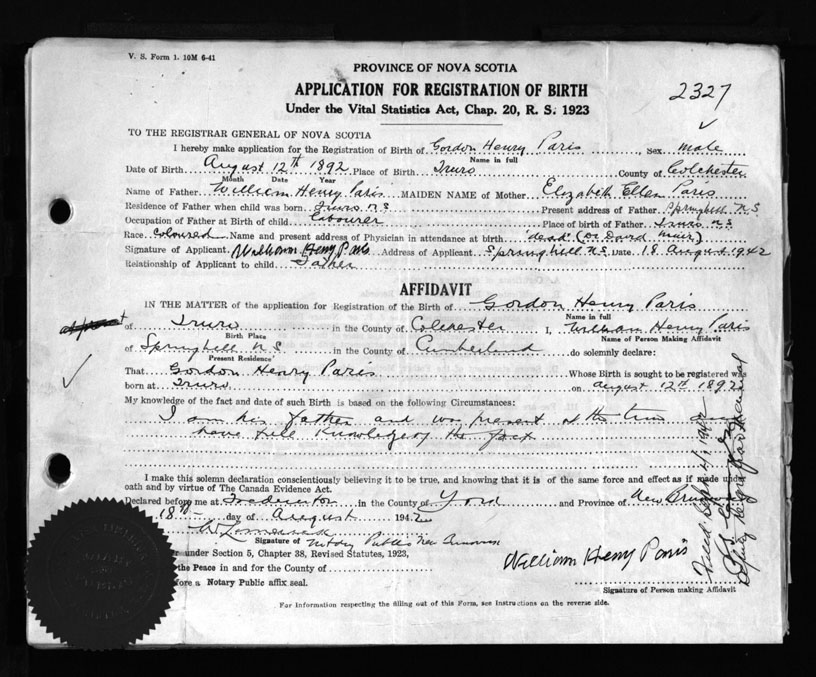 V. S. Form 1. 10M 6-41
PROVINCE OF NOVA SCOTIA
APPLICATION FOR REGISTRATION OF BIRTH
Under the Vital Statistics Act, Chap. 20, R. S. 1923
2327
TO THE REGISTRAR GENERAL OF NOVA SCOTIA
I hereby make application for the Registration of Birth of Gordon Henry Paris, Sex male
Name in full
Date of Birth August 12th 1892 Place of Birth Truro County of Colchester
Month Date Year
Name of Father William Henry Paris MAIDEN NAME of Mother Elizabeth Ellen Paris
Residence of Father when child was born Truro N S Present address of Father Springhill N S
Occupation of Father at Birth of child Labourer Place of birth of Father Truro N S
Race Coloured Name and present address of Physician in attendance at birth dead (Dr David Muir)
Signature of Applicant William Henry Paris Address of Applicant Springhill N S Date 18 August 1942
Relationship of Applicant to child Father
AFFIDAVIT
IN THE MATTER of the application for Registration of the Birth of Gordon Henry Paris
Name in full
of Truro in the County of Colchester I, William Henry Paris
Birth Place Name of Person Making Affidavit
of Springhill N S in the County of Cumberland do solemnly declare:
Present Residence
That Gordon Henry Paris Whose Birth is sought to be registered was
born at Truro on August 12th 1892
My knowledge of the fact and date of such Birth is based on the following Circumstances:
I am his father and was present at the time and
have full knowledge of the fact
I make this solemn declaration conscientiously believing it to be true, and knowing that it is of the same force and effect as if made under
oath and by virtue of The Canada Evidence Act.
Declared before me at Fredericton in the County of York and Province of New Brunswick
18th day of August 1942
Signature of Notary Public New Brunswick
under Section 5, Chapter 38, Revised Statutes, 1923,
the Peace in and for the County of
William Henry Paris
before a Notary Public affix seal.
Signature of Person making Affidavit
For information respecting the filling out of this Form, see instructions on the reverse side.
Filed Sept 4, 1942
Deputy Registrar General